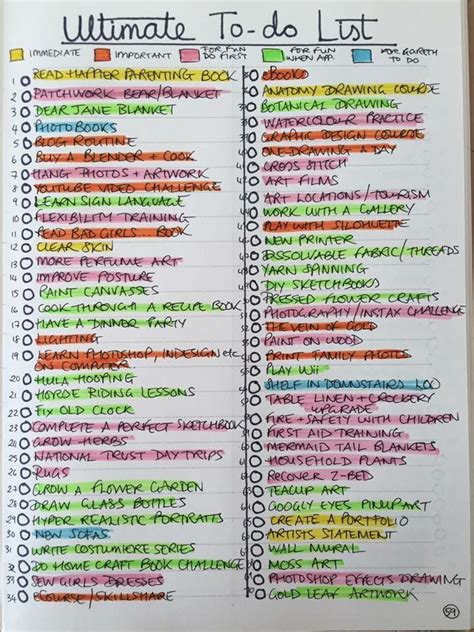 Ultimate To-do List
IMMEDIATE
IMPORTANT
FOR FUN DO FIRST
FOR FUN WHEN APP.
FOR GARETH TO DO
1 READ HAPPIER PARENTING BOOK
2 PATCHWORK BEAR/BLANKET
3 DEAR JANE BLANKET
4 PHOTOBOOKS
5 BLOG ROUTINE
6 BUY A BLENDER + COOK
7 HANG PHOTOS + ARTWORK
8 YOUTUBE VIDEO CHALLENGE
9 LEARN SIGN LANGUAGE
10 FLEXIBILITY TRAINING
11 READ BAD GIRLS... BOOK
12 CLEAR SKIN
13 MORE PERFUME ART
14 IMPROVE POSTURE
15 PAINT CANVASSES
16 COOK THROUGH A RECIPE BOOK
17 HAVE A DINNER PARTY
18 LIGHTING
19 LEARN PHOTOSHOP, INDESIGN etc
ON COMPUTER...
20 HULA HOOPING
21 HORSE RIDING LESSONS
22 FIX OLD CLOCK
23 COMPLETE A PERFECT SKETCHBOOK
24 GROW HERBS
25 NATIONAL TRUST DAY TRIPS
26 RUGS
27 GROW A FLOWER GARDEN
28 DRAW GLASS BOTTLES
29 HYPER REALISTIC PORTRAITS
30 NEW SOFAS
31 WRITE COSTUMIERE SERIES
32 DO HOME CRAFT BOOK CHALLENGE
33 SEW GIRLS DRESSES
34 eCOURSE/SKILLSHARE
eBOOKS
ANATOMY DRAWING COURSE
BOTANICAL DRAWING
WATERCOLOUR PRACTICE
GRAPHIC DESIGN COURSE
ONE-DRAWING A DAY
CROSS STITCH
ART FILMS
ART LOCATIONS/TOURISM
WORK WITH A GALLERY
PLAY WITH SILHOUETTE
NEW PRINTER
DISSOLVABLE FABRIC/THREADS
YARN SPINNING
DIY SKETCHBOOKS
PRESSED FLOWER CRAFTS
PHOTOGRAPHY/INSTAX CHALLENGE
THE VEIN OF GOLD
PAINT ON WOOD
PRINT FAMILY PHOTOS
PLAY Wii
SHELF IN DOWNSTAIRS LOO
TABLE LINEN + CROCKERY
UPGRADE
FIRE + SAFETY WITH CHILDREN
FIRST AID TRAINING
MERMAID TAIL BLANKETS
HOUSEHOLD PLANTS
RECOVER Z-BED
TEACUP ART
GOOGLY EYES PINUP ART
CREATE A PORTFOLIO
ARTISTS STATEMENT
WALL MURAL
MOSS ART
PHOTOSHOP EFFECTS DRAWING
GOLD LEAF ARTWORK
59